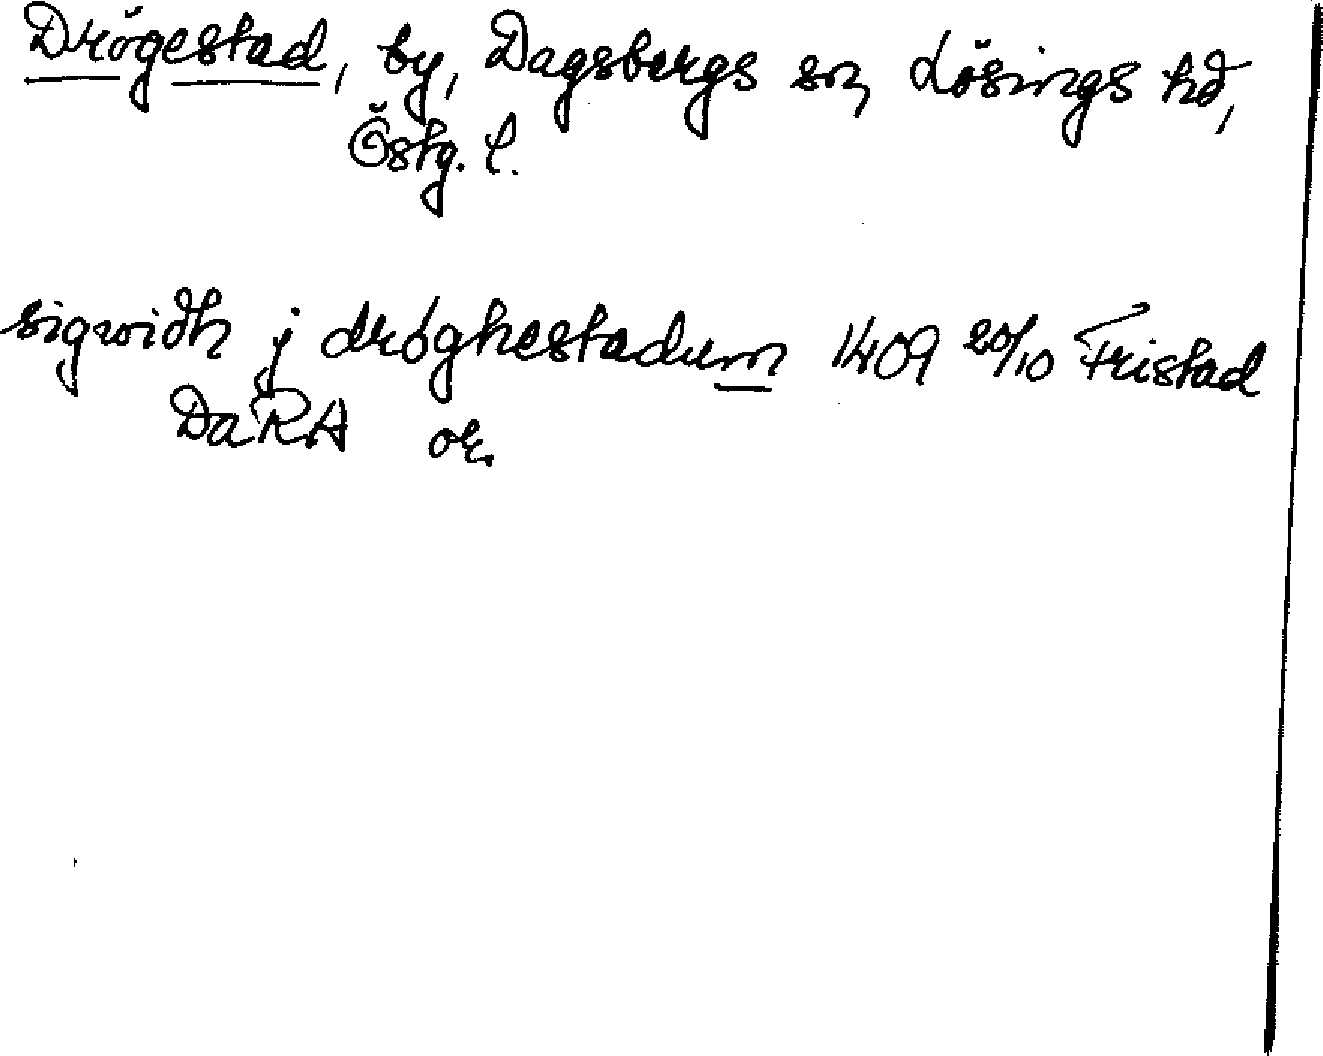 Drögestad, by, Dagsbergs sn, Lösings hd,
Östg. l.
sigwidh j dróghestadum 1409 20/10 Fristad
DaRA or.